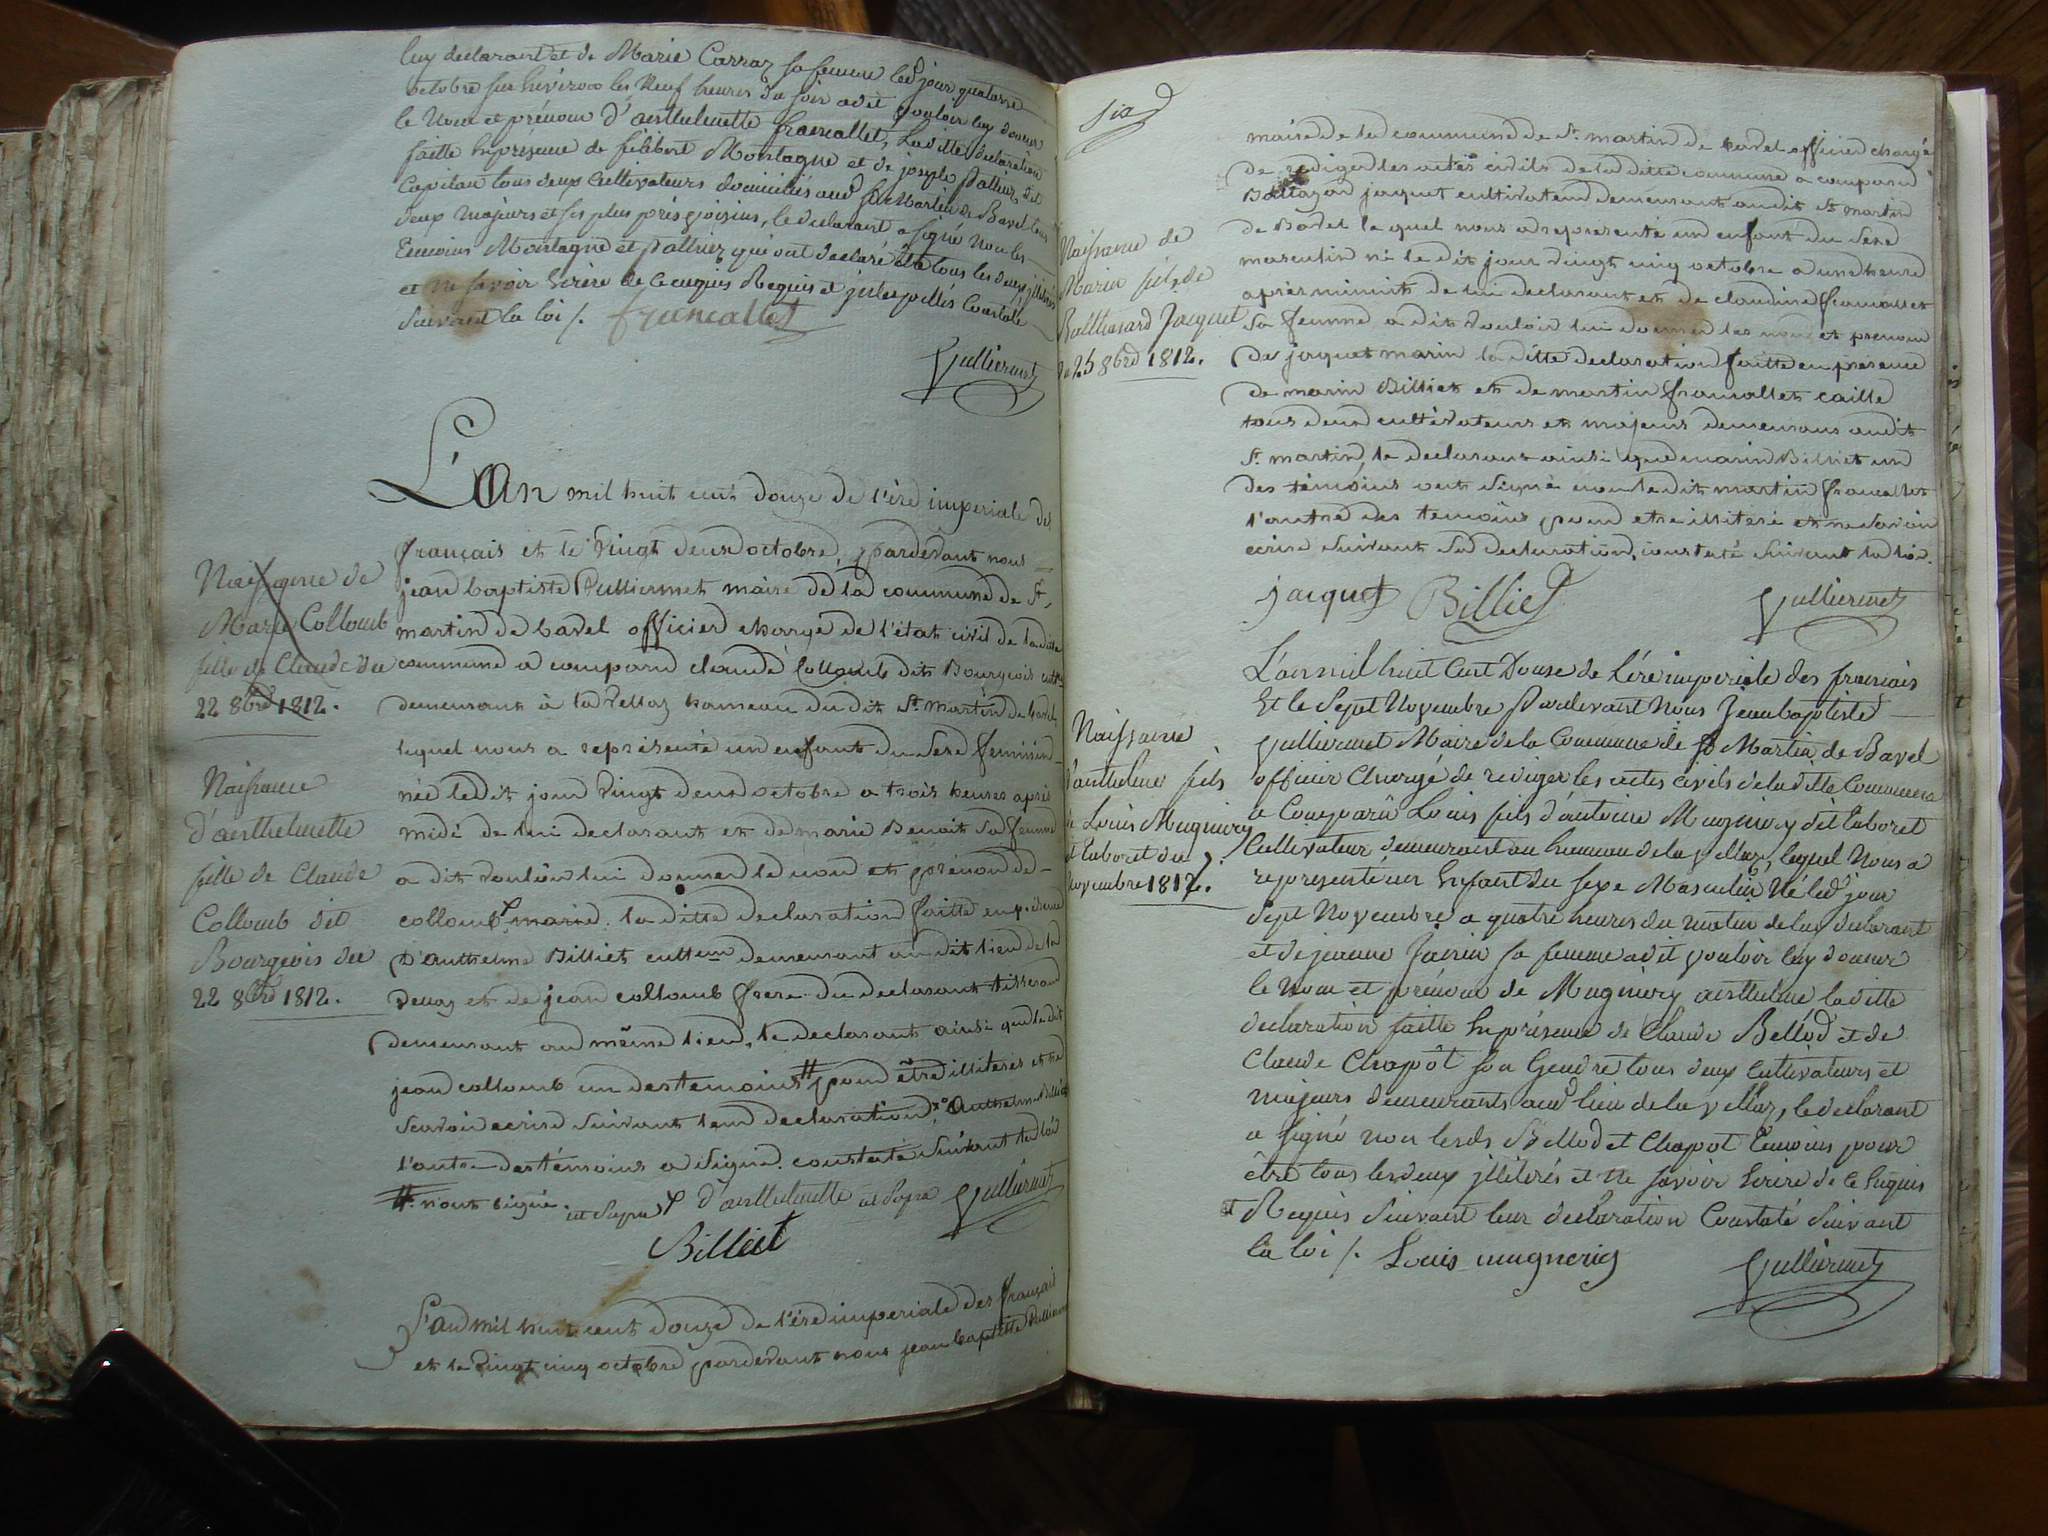 luy declarant et de Marie Carraz sa femme led jour quatorze
octobre sur les Neuf heures du soir a dit vouloir luy donner
le Nom et prénom d'anthelmette francallet, Laditte declaration
faitte En présence de filibert Montagne et de joseph palliez dit
Capitan tous deux Cultivateurs domiciliés aud St Martin de Bavel tous
deux Majeurs et ses plus près voisins, le declarant a signé Non les
Temoins Montagne et palliez qui ont declaré être tous les deux illiterés
et Ne savoir Ecrire de Ce enquis Requis et interpellés Constaté
Suivant la loi /. francallet
Vulliermet
L'an mil huit cent douze de l'ère imperiale des
français et le vingt deux octobre, pardevant nous
jean baptiste Vulliermet maire de la commune de St
martin de bavel officier chargé de l'état civil de la ditte
commune a comparu claude Collomb dit Bourgeois cultr
demeurant à la vellaz hameau du dit St martin de bavel
lequel nous a représenté un enfant du sexe feminin
née le dit jour vingt deux octobre a trois heures après
midi de lui declarant et de marie Benoit sa femme
a dit vouloir lui donner le nom et prénom de
collomb marie. la ditte declaration faitte en présence
d'anthelme Billiet cultteur demeurant au dit lieu de la
vellaz et de jean collomb frere du declarant tisserand
demeurant au même lieu, le declarant ainsi que le dit
jean collomb un des temoins # pour être illiterés et ne
scavoir ecrire suivant leur declaration, Anthelme Billiet
l'autre des témoins a signé. constaté suivant la loi
#. n'ont signé. ut supra d'anthelmette ut supra Vulliermet
Billiet
L'an mil huit cent douze de l'ère imperiale des français
et le vingt cinq octobre pardevant nous jean baptiste Vulliermet
Naissance de
Marie Collomb
fille de Claude du
22 8bre 1812.
Naissance
d'anthelmette
fille de Claude
Collomb dit
Bourgeois du
22 8bre 1812.
six
maire de la commune de St martin de bavel officier chargé
de rediger les actes civils de la ditte commune a comparu
Baltazar jaquet cultivateur demeurant au dit St martin
de Bavel le quel nous a representé un enfant du sexe
masculin né le dit jour vingt cinq octobre a une heure
après minuit de lui declarant et de claudine francallet
sa femme a dit vouloir lui donner les nom et prenom
de jaquet marin la ditte declaration faitte en présence
de marin Billiet et de martin francallet caille
tous deux cultivateurs et majeurs demeurans audit
St martin, le declarant ainsi que marin Billiet un
des témoins ont signé non le dit martin francallet
l'autre des temoins pour etre illiteré et ne savoir
ecrire suivant sa declaration. constaté suivant la loi.
jacquet Billiet Vulliermet
Naissance de
Marin fils de
Balthasard Jacquet
du 25 8bre 1812.
L'an mil huit Cent Douse de L'ére imperiale des français
Et le Sept Novembre Pardevant Nous Jean baptiste
Vulliermet Maire de la Commune de St Martin de Bavel
officier Chargé de rediger les actes civils de la ditte Commune
a Comparu Louis fils d'antoine Mugniery dit Taboret
Cultivateur demeurant au hameau de la vellaz, lequel Nous a
representé un Enfant du sexe Masculin Né led jour
Sept Novembre a quatre heures du matin de luy declarant
et de jeanne Janin sa femme a dit vouloir luy donner
le Nom et prénom de Mugniery anthelme la ditte
declaration faitte En présence de Claude Bellod et de
Claude Chapot son Gendre tous deux Cultivateurs et
majeurs demeurants aud lieu de la vellaz, le declarant
a signé non lesds Bellod et Chapot Temoins pour
être tous les deux illiterés et Ne savoir Ecrire de Ce Enquis
et Requis Suivant leur declaration Constaté Suivant
la loi /. Louis mugneriy Vulliermet
Naissance
d'anthelme fils
de Louis Mugniery
dit Taboret du 7.
Novembre 1812.